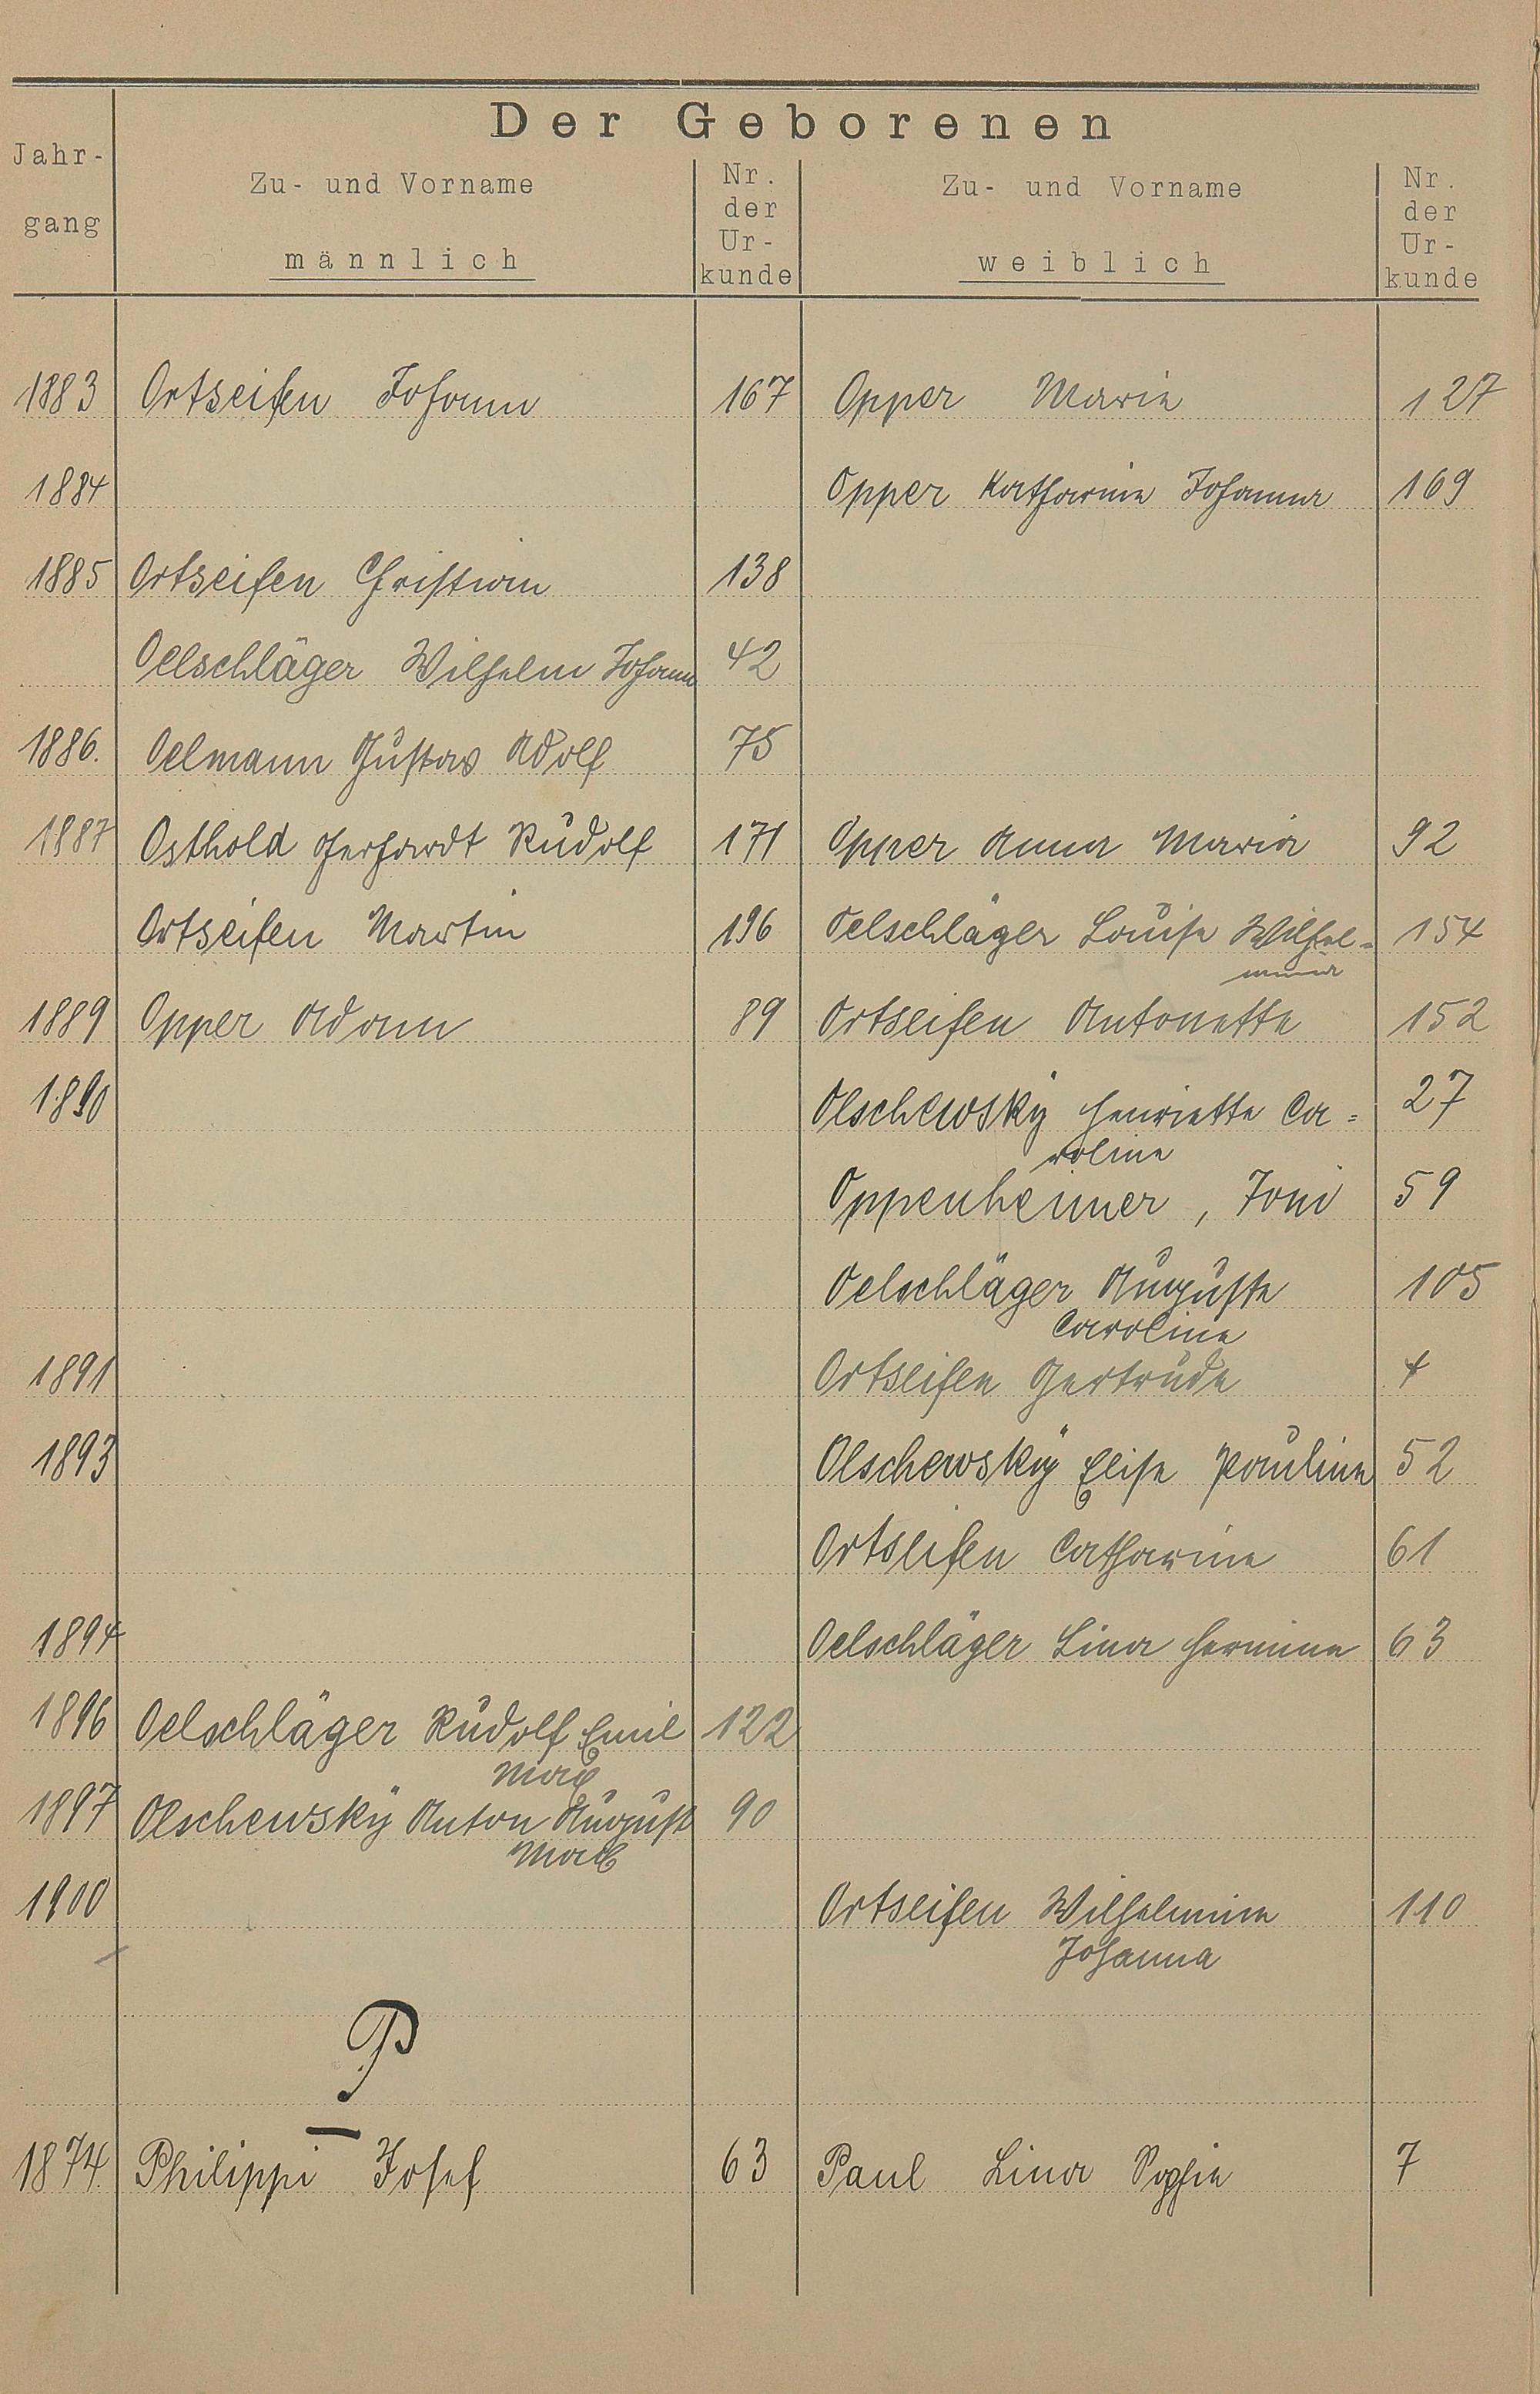 Der Geborenen
Jahr-
gang
Zu- und Vorname
männlich
Nr.
der
Ur-
kunde
Zu- und Vorname
weiblich
Nr.
der
Ur-
kunde
1883 Ortseifen Johann 167 Opper Marie 127
1884 Opper Katharina Johanna 169
1885 Ortseifen Christian 138
Oelschläger Wilhelm Johann 42
1886. Oelmann Gustav Adolf 75
1887 Osthold Gerhardt Rudolf 171 Opper Anna Maria 92
Ortseifen Martin 196 Oelschläger Louise Wilhel= 154
mina
1889 Opper Adam 89 Ortseifen Antonette 152
1890 Olschewsky Henriette Ca= 27
roline
Oppenheimer, Toni 59
Oelschläger Auguste 105
Caroline
1891 Ortseifen Gertrude 4
1893 Olschewsky Elise Pauline 52
Ortseifen Catharine 61
1894 Oelschläger Lina Hermine 63
1896 Oelschläger Rudolf Emil 122
Max
1897 Olschewsky Anton August 90
Max
1900 Ortseifen Wilhelmine 110
Johanna
P
1874. Philippi Josef 63 Paul Lina Sophie 7